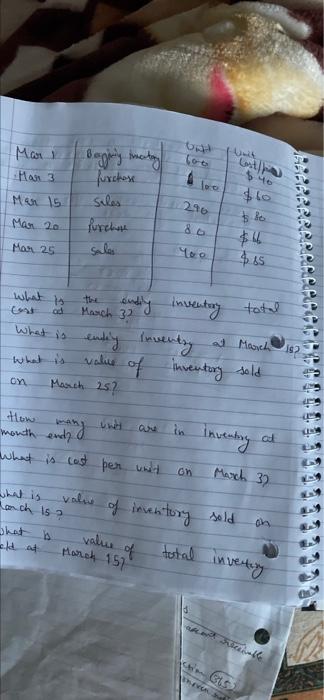 Unit Unit
Mar 1 Begging inventory 600 Cost/
$40
Mar 3 Purchase 100 $60
Mar 15 Sales 290 $80
Mar 20 Purchase 80 $66
Mar 25 Sales 400 $85
What is the ending inventory total
cost at March 3?
What is ending inventory at March 15?
What is value of inventory sold
on March 25?
How many unit are in inventory at
month end?
What is cost per unit on March 3?
what is value of inventory sold on
March 15?
what is value of total inventory
old at March 15?
account receivable
365